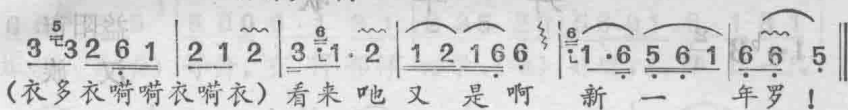 3 5 3 2 6 1 | 2 1 2 | 3 6 1 · 2 | 1 2 1 6 6 | 6 1 · 6 5 6 1 | 6 6 5 ‖
(衣多衣嗬嗬衣嗬衣)看来吔又是啊新一年罗!